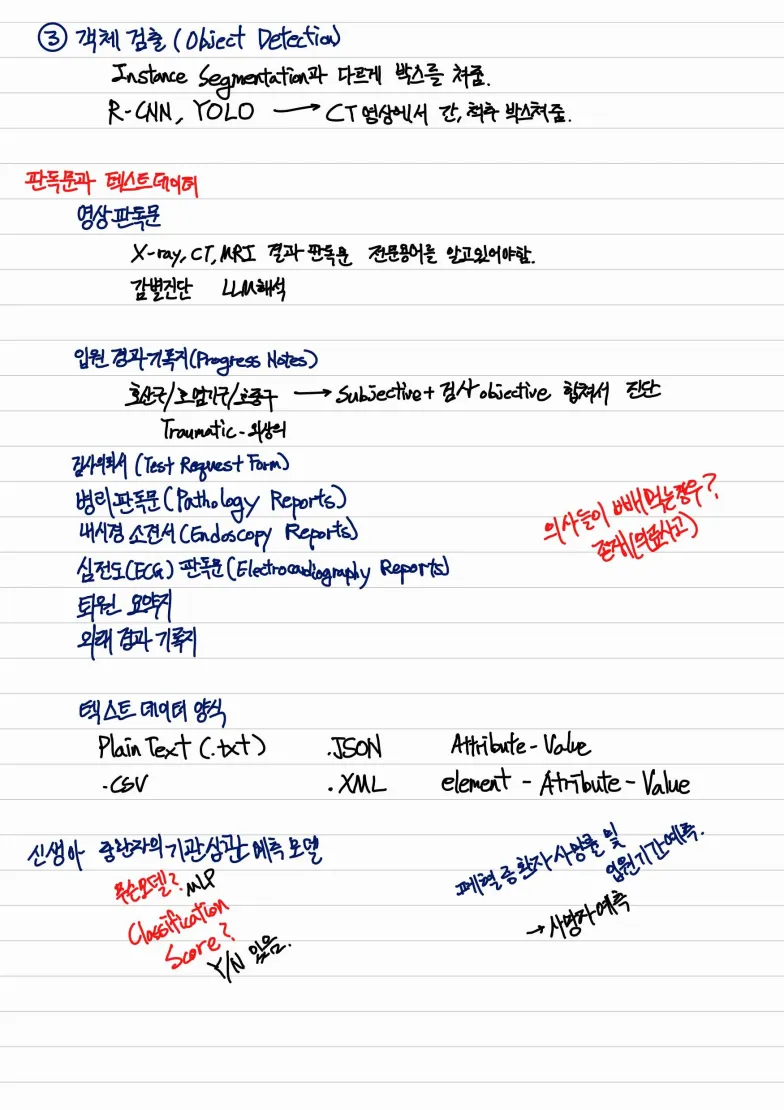 ③ 객체 검출 (Object Detection)
Instance Segmentation과 다르게 박스를 쳐줌.
R-CNN, YOLO → CT 영상에서 간, 척추 박스쳐줌.
판독문과 텍스트데이터
영상판독문
X-ray, CT, MRI 결과 판독문 전문용어를 알고있어야함.
감별진단 LLM해석
입원 경과기록지(Progress Notes)
호산구/호염기구/호중구 → Subjective + 검사 objective 합쳐서 진단
Traumatic - 외상의
검사의뢰서 (Test Request Form)
병리판독문 (Pathology Reports)
내시경 소견서 (Endoscopy Reports)
의사들이 빼먹는경우?
존재(의료사고)
심전도(ECG) 판독문 (Electrocardiography Reports)
퇴원 요약지
외래 경과 기록지
텍스트 데이터 양식
Plain Text (.txt) .JSON Attribute - Value
.CSV .XML element - Atribute - Value
신생아 중환자의 기관삽관 예측 모델
무슨모델? MLP
Classification
Score?
Y/N 있음.
패혈증환자 사망률 및
입원기간예측.
→ 사망자예측